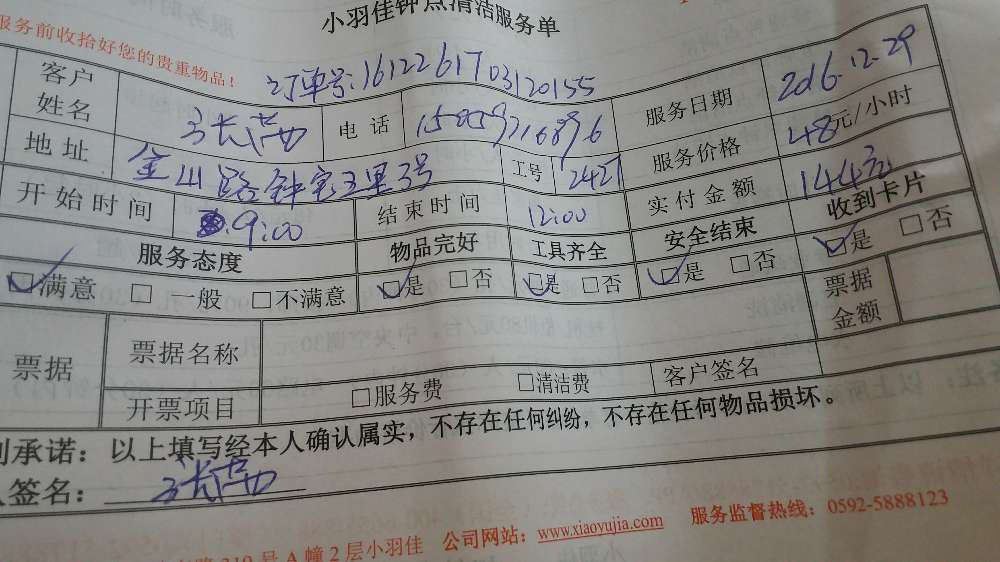 小羽佳钟点清洁服务单
服务前收拾好您的贵重物品!
订单号:1612261703120155
客户姓名 电话 服务日期 2016.12.29
地址 金山路 3号 工号 2421 服务价格 48元/小时
开始时间 9:00 结束时间 12:00 实付金额 144元
服务态度 物品完好 工具齐全 安全结束 收到卡片
☑满意 □一般 □不满意 ☑是 □否 ☑是 □否 ☑是 □否 ☑是 □否
票据 票据名称 票据金额
开票项目 □服务费 □清洁费 客户签名
承诺:以上填写经本人确认属实,不存在任何纠纷,不存在任何物品损坏。
签名:
A幢2层小羽佳 公司网站:www.xiaoyujia.com 服务监督热线:0592-5888123